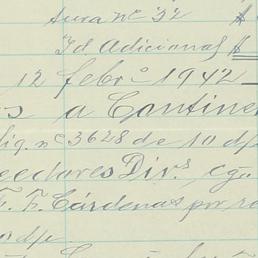 tura nº 32 $
Id Adicional $
12 febrº 1942
s a Contine
liq. nº 3628 de 10 d/p
eedores Div.s c/gu
F. F. Cárdenas por re
d/p